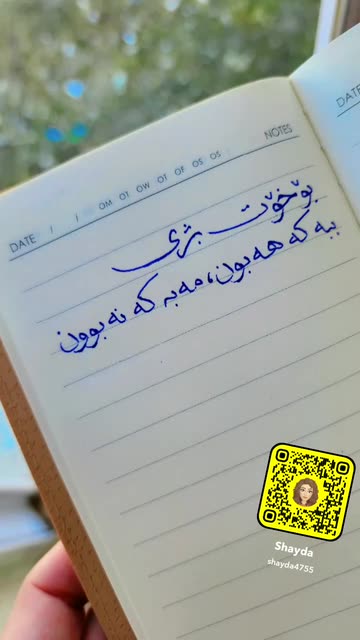 DATE / / OM OT OW OT OF OS OS NOTES
DATE
بۆخۆت بژی
ببە کە هەبون، مەبە کە نەبوون
Shayda
shayda4755